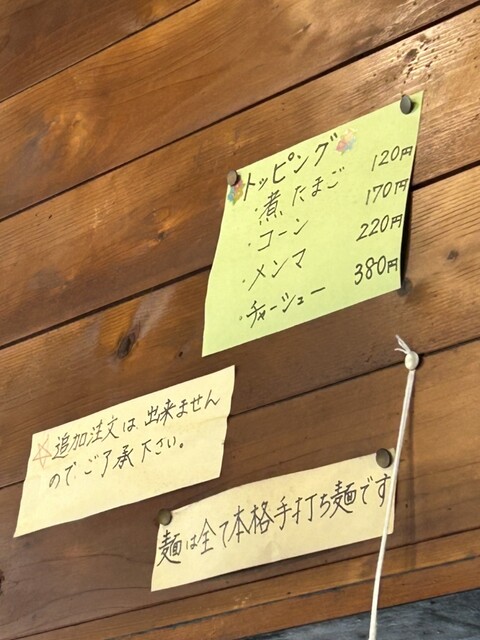 トッピング
・煮たまご 120円
・コーン 170円
・メンマ 220円
・チャーシュー 380円
☆追加注文は出来ません
ので、ご了承下さい。
麺は全て本格手打ち麺です